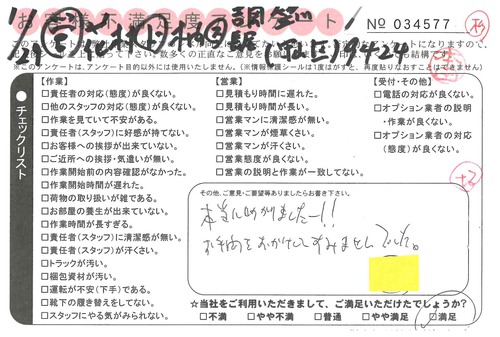 お客様不満足度 ト
No 034577
【作業】
□責任者の対応(態度)が良くない。
□他のスタッフの対応(態度)が良くない。
□作業を見ていて不安がある。
□責任者(スタッフ)に好感が持てない。
□お客様への挨拶が出来ていない。
□ご近所への挨拶・気遣いが無い。
□作業開始前の内容確認がなかった。
□作業開始時間が遅れた。
□荷物の取り扱いが雑である。
□お部屋の養生が出来ていない。
□作業時間が長すぎる。
□責任者(スタッフ)に清潔感が無い。
□責任者(スタッフ)が汗くさい。
□トラックが汚い。
□梱包資材が汚い。
□運転が不安(下手)である。
□靴下の履き替えをしてない。
□スタッフにやる気がみられない。
【営業】
□見積もり時間に遅れた。
□見積もり時間が長い。
□営業マンに清潔感が無い。
□営業マンが煙草くさい。
□営業マンが汗くさい。
□営業態度が良くない。
□営業の説明と作業が一致してない。
【受付・その他】
□電話の対応が良くない。
□オプション業者の説明
・作業が良くない。
□オプション業者の対応
(態度)が良くない。
チェックリスト
その他、ご意見・ご要望等ありましたらお書き下さい。
本当に助かりましたー!!
お手間をおかけしてすみませんでした。
☆当社をご利用いただきまして、ご満足いただけたでしょうか?
□不満 □やや不満 □普通 □やや満足 □満足